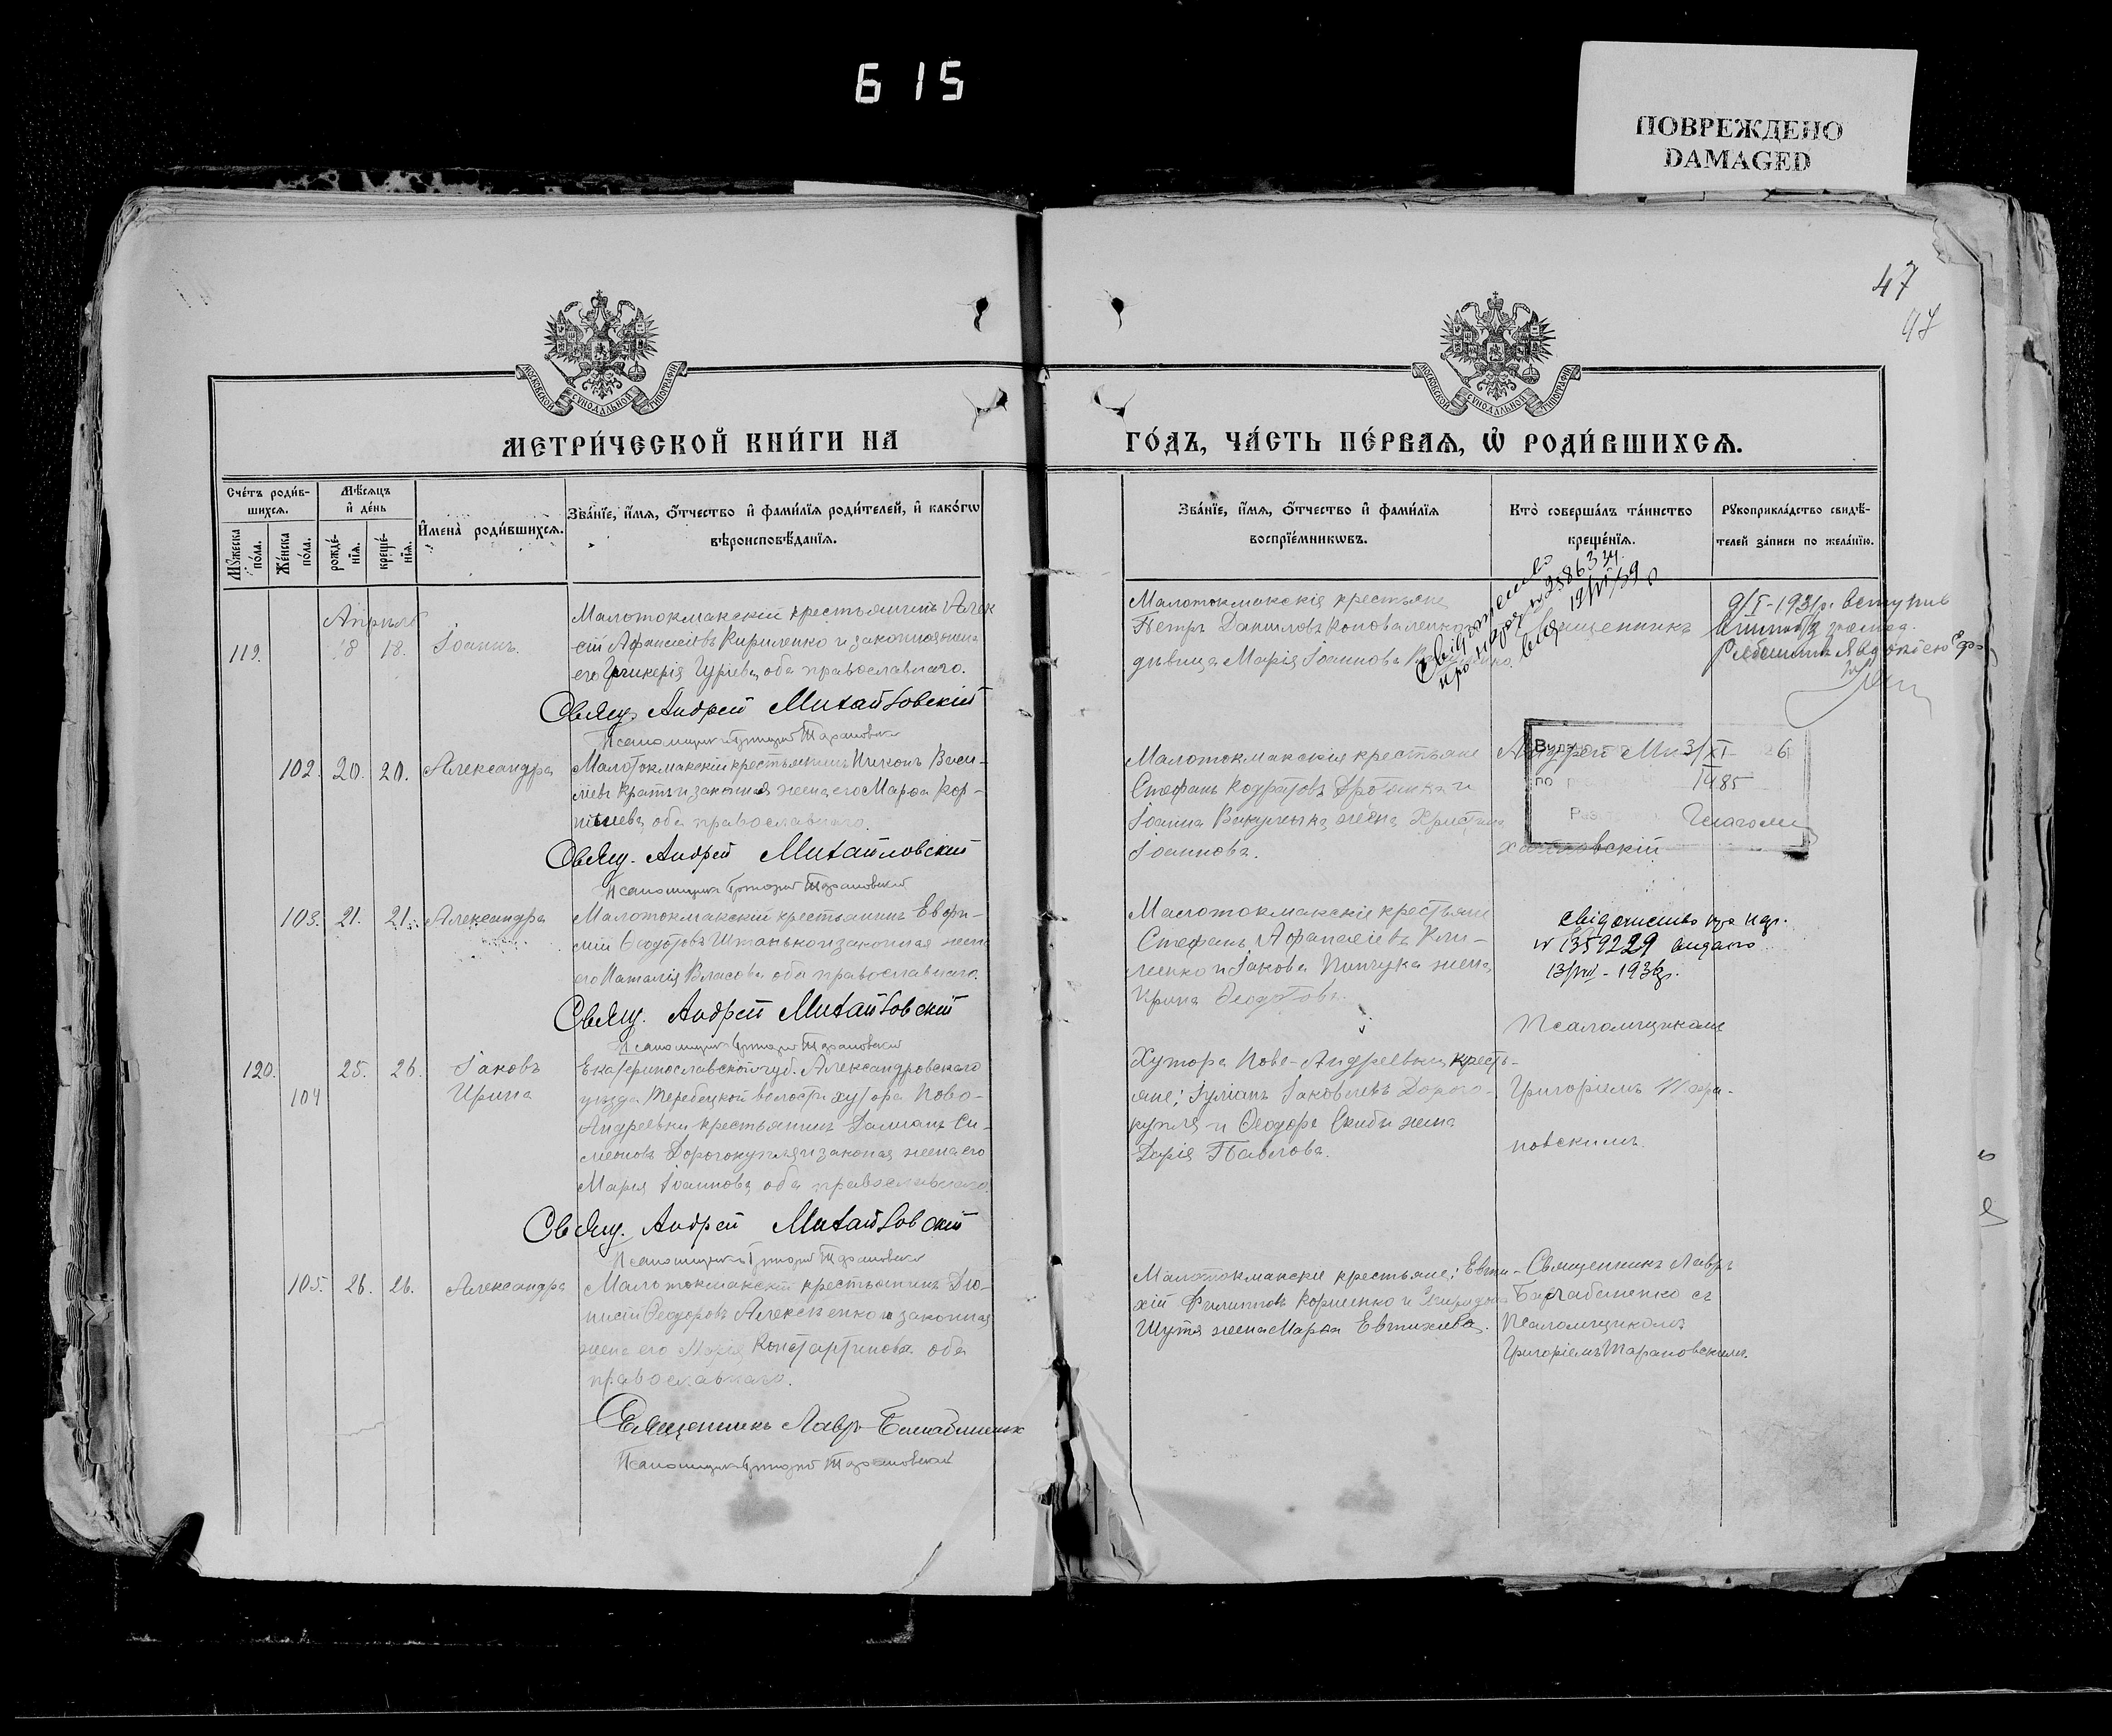 615
ПОВРЕЖДЕНО
DAMAGED
47
47
МОСКОВСКОЙ СѴНОДАЛЬНОЙ ТИПОГРАФІИ
МОСКОВСКОЙ СѴНОДАЛЬНОЙ ТИПОГРАФІИ
МЕТРИ́ЧЕСКОЙ КНИ́ГИ НА
ГО́ДЪ, ЧА́СТЬ ПЕ́РВАѦ, Ѡ РОДИ́ВШИХСѦ.
Сче́тъ роди́в-
шихсѧ.
Мꙋжеска по́ла.
Же́нска по́ла.
Мѣ́сѧцъ и де́нь
рожде́-нїѧ.
креще́-нїѧ.
И҆мена̀ роди́вшихсѧ.
Зва́нїе, и҆́мѧ, ѻ҆́тчество и҆ фами́лїѧ роди́телей, и҆ како́гѡ
вѣроисповѣ́данїѧ.
Зва́нїе, и҆́мѧ, ѻ҆́тчество и҆ фами́лїѧ
воспрїе́мникѡвъ.
Кто̀ соверша́лъ та́инство
креще́нїѧ.
Рꙋкоприкла́дство свидѣ́-
телей за́писи по жела́нїю.
Апрѣль
119. 18 18. Іоаннъ.
Малотокмакскій крестьянинъ Алек
сій Афанасіевъ Кириленко и законная жена
его Гликерія Гуріева, оба православнаго.
Свящ. Андрей Михайловскій
Псаломщикъ Григорій Тарановскій
Малотокмакскія крестьяне
Петръ Даниловъ Коноваленко
дѣвица Марія Іоаннова
Священникъ
9/I-1931р. вступив
102. 20. 20. Александра
Малотокмакскій крестьянинъ Никонъ Васи-
ліевъ Кратъ и законная жена его Марѳа Кор-
ниліева, оба православнаго.
Свящ. Андрей Михайловскій
Псаломщикъ Григорій Тарановскій
Малотокмакскія крестьяне
Стефанъ
Іоанна Вакуленка жена Христина
Іоаннова.
Андрей Ми-
3/XI-
1985
хайловскій
103. 21. 21. Александра
Малотокмакскій крестьянинъ Евфи-
мій Ѳеодотовъ Штанько и законная жена
его Наталія Власова, оба православнаго.
Свящ. Андрей Михайловскій
Псаломщикъ Григорій Тарановскій
Малотокмакскіе крестьяне
Стефанъ Афанасіевъ Кли-
менко и Іакова Пинчука жена
Ирина Ѳеодотова.
N 1359229 видано
Псаломщикомъ
120. 25. 26. Іаковъ
104 Ирина
Екатеринославской губ. Александровскаго
уѣзда, волости хутора Ново-
Андреевки крестьянинъ Даміанъ Си-
меоновъ Дорогокупля и законая жена его
Марія Іоаннова, оба православнаго.
Свящ. Андрей Михайловскій
Псаломщикъ Григорій Тарановскій
Хутора Ново-Андреевки кресть-
яне: Іуліанъ Іаковлевъ Дорого-
купля и Ѳеодора Скибы жена
Дарія Павлова.
Григоріемъ Тара-
новскимъ.
105. 26. 26. Александра
Малотокмакскій крестьянинъ Діо-
нисій Ѳеодоровъ Алексѣенко и законная
жена его Марія Константинова оба
православнаго.
Священникъ Лавръ
Псаломщикъ Григорій Тарановскій
Малотокмакскіе крестьяне: Евти-
хій Филипповъ Корніенко и Спиридона
Шутя жена Марѳа Евтихіева.
Священникъ Лавръ
съ
Псаломщикомъ
Григоріемъ Тарановскимъ.